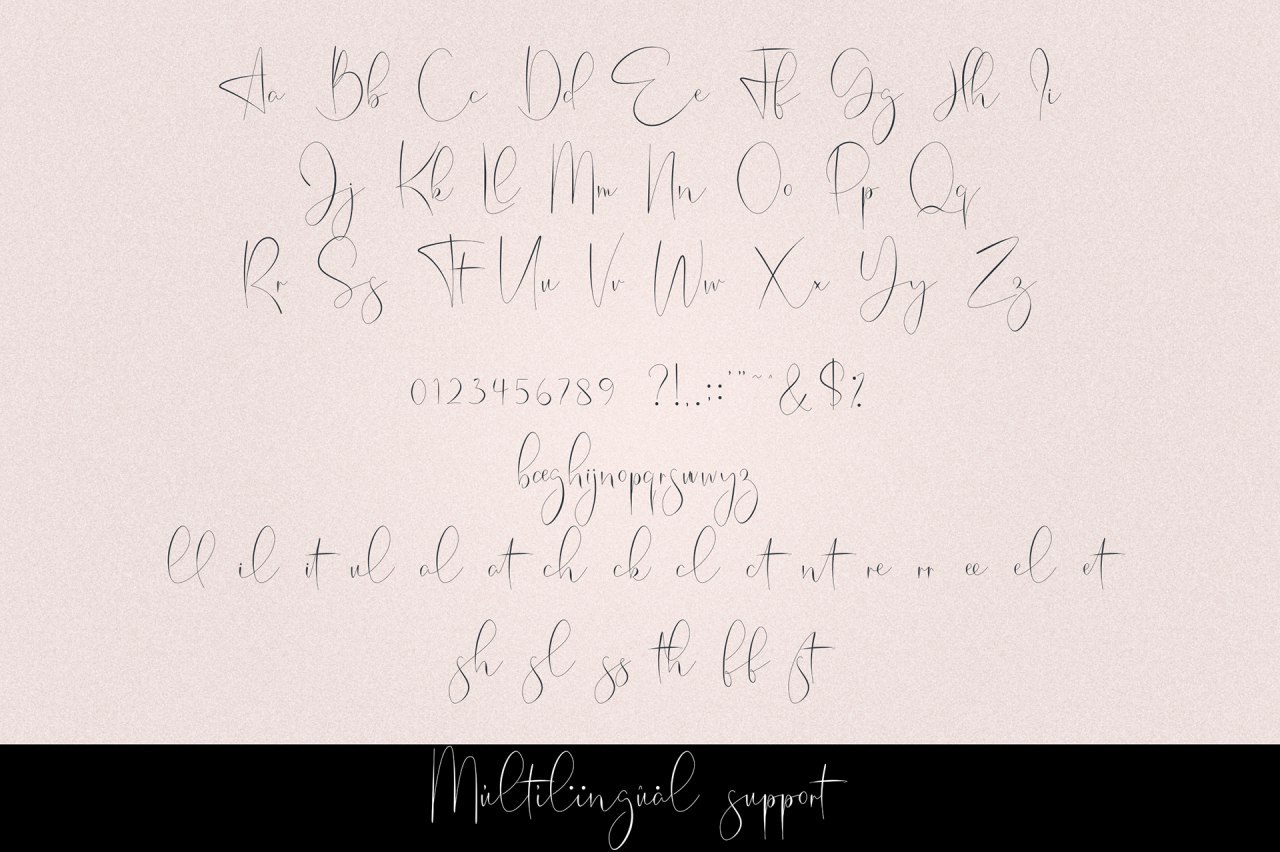 Aa Bb Cc Dd Ee Ff Gg Hh Ii
Jj Kk Ll Mm Nn Oo Pp Qq
Rr Ss Tt Uu Vv Ww Xx Yy Zz
0123456789 ?!,.;:'"~^&$%
bceghijnopqrsuvwyz
ll il it ul al at ch ck cl ct nt re rr ee el et
sh sl ss th ff st
Mùltilïingûàl support